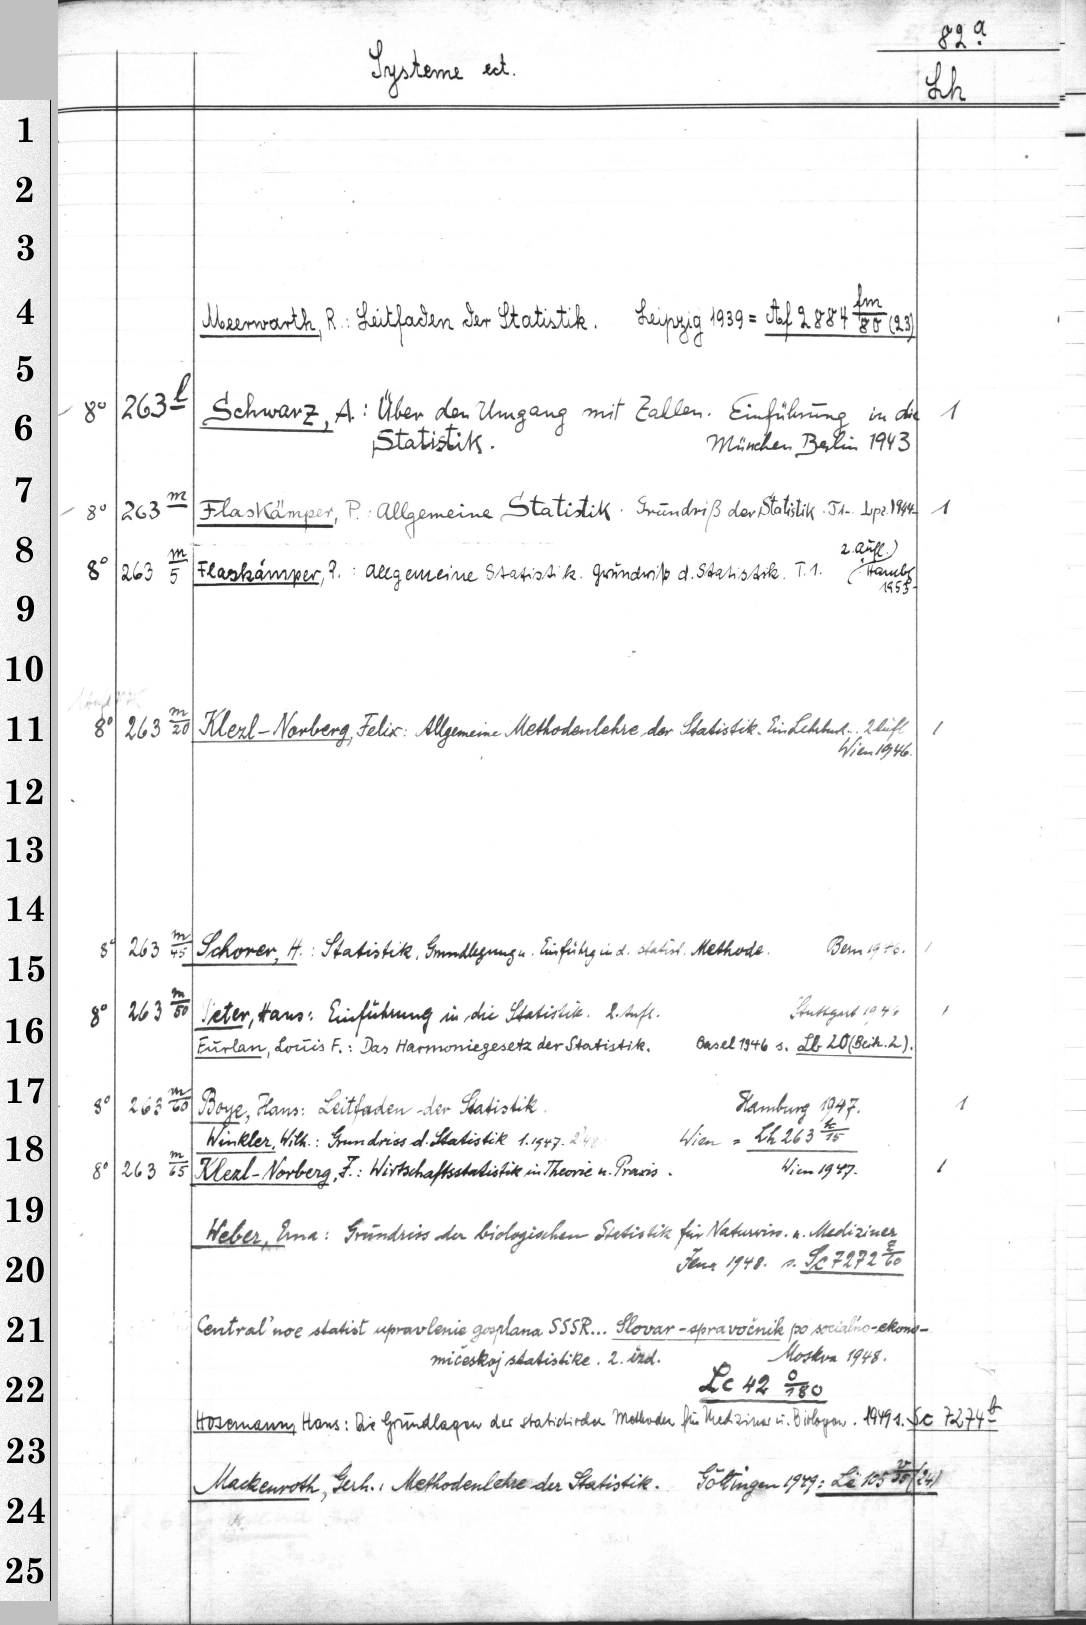 82a.
Systeme ect.
Lh
1
2
3
4 Meerwarth, R.: Leitfaden der Statistik. Leipzig 1939 = Af 2884 fm/80 (23)
5
6 8° 263 l Schwarz, A.: Über den Umgang mit Zahlen. Einführung in die 1
Statistik. München Berlin 1943
7
8° 263 m Flaskämper, P.: Allgemeine Statistik. Grundriß der Statistik T1- Lpz. 1944- 1
8 2. Aufl.)
8° 263 m/5 Flaskämper, P.: Allgemeine Statistik. Grundriß d. Statistik. T. 1. (Hambg
1953-
9
10
11 8° 263 m/20 Klezl-Norberg, Felix: Allgemeine Methodenlehre der Statistik. Ein Lehrbuch.. 2. Aufl 1
Wien 1946.
12
13
14
15 8° 263 m/45 Schorer, H.: Statistik. Grundlegung u. Einführg in d. statist. Methode. Bern 1946. 1
16 8° 263 m/50 Peter, Hans: Einführung in die Statistik. 2. Aufl. Stuttgart 1946 1
Furlan, Louis F.: Das Harmoniegesetz der Statistik. Basel 1946 s. Lb 20 (Beih. 2).
17 8° 263 m/60 Boye, Hans: Leitfaden der Statistik. Hamburg 1947. 1
18 Winkler, Wilh.: Grundriss d. Statistik 1.1947. Wien = Lh 263 k/15
8° 263 m/65 Klezl-Norberg, F.: Wirtschaftsstatistik in Theorie u. Praxis. Wien 1947. 1
19 Weber, Erna: Grundriss der biologischen Statistik für Naturwiss. u. Mediziner
20 Jena 1948. s. Sc 7272 /60
21 Central'noe statist upravlenie gosplana SSSR... Slovar-spravočnik po social'no-ekono-
mičeskoj statistike. 2. izd. Moskva 1948.
22 Lc 42 0/180
Hosemann, Hans: Die Grundlagen der statistischen Methoden für Mediziner u. Biologen. 1949 s. Sc 7274 b
23
24 Mackenroth, Gerh.: Methodenlehre der Statistik. Göttingen 1949: Le 105 v/35 (24)
25